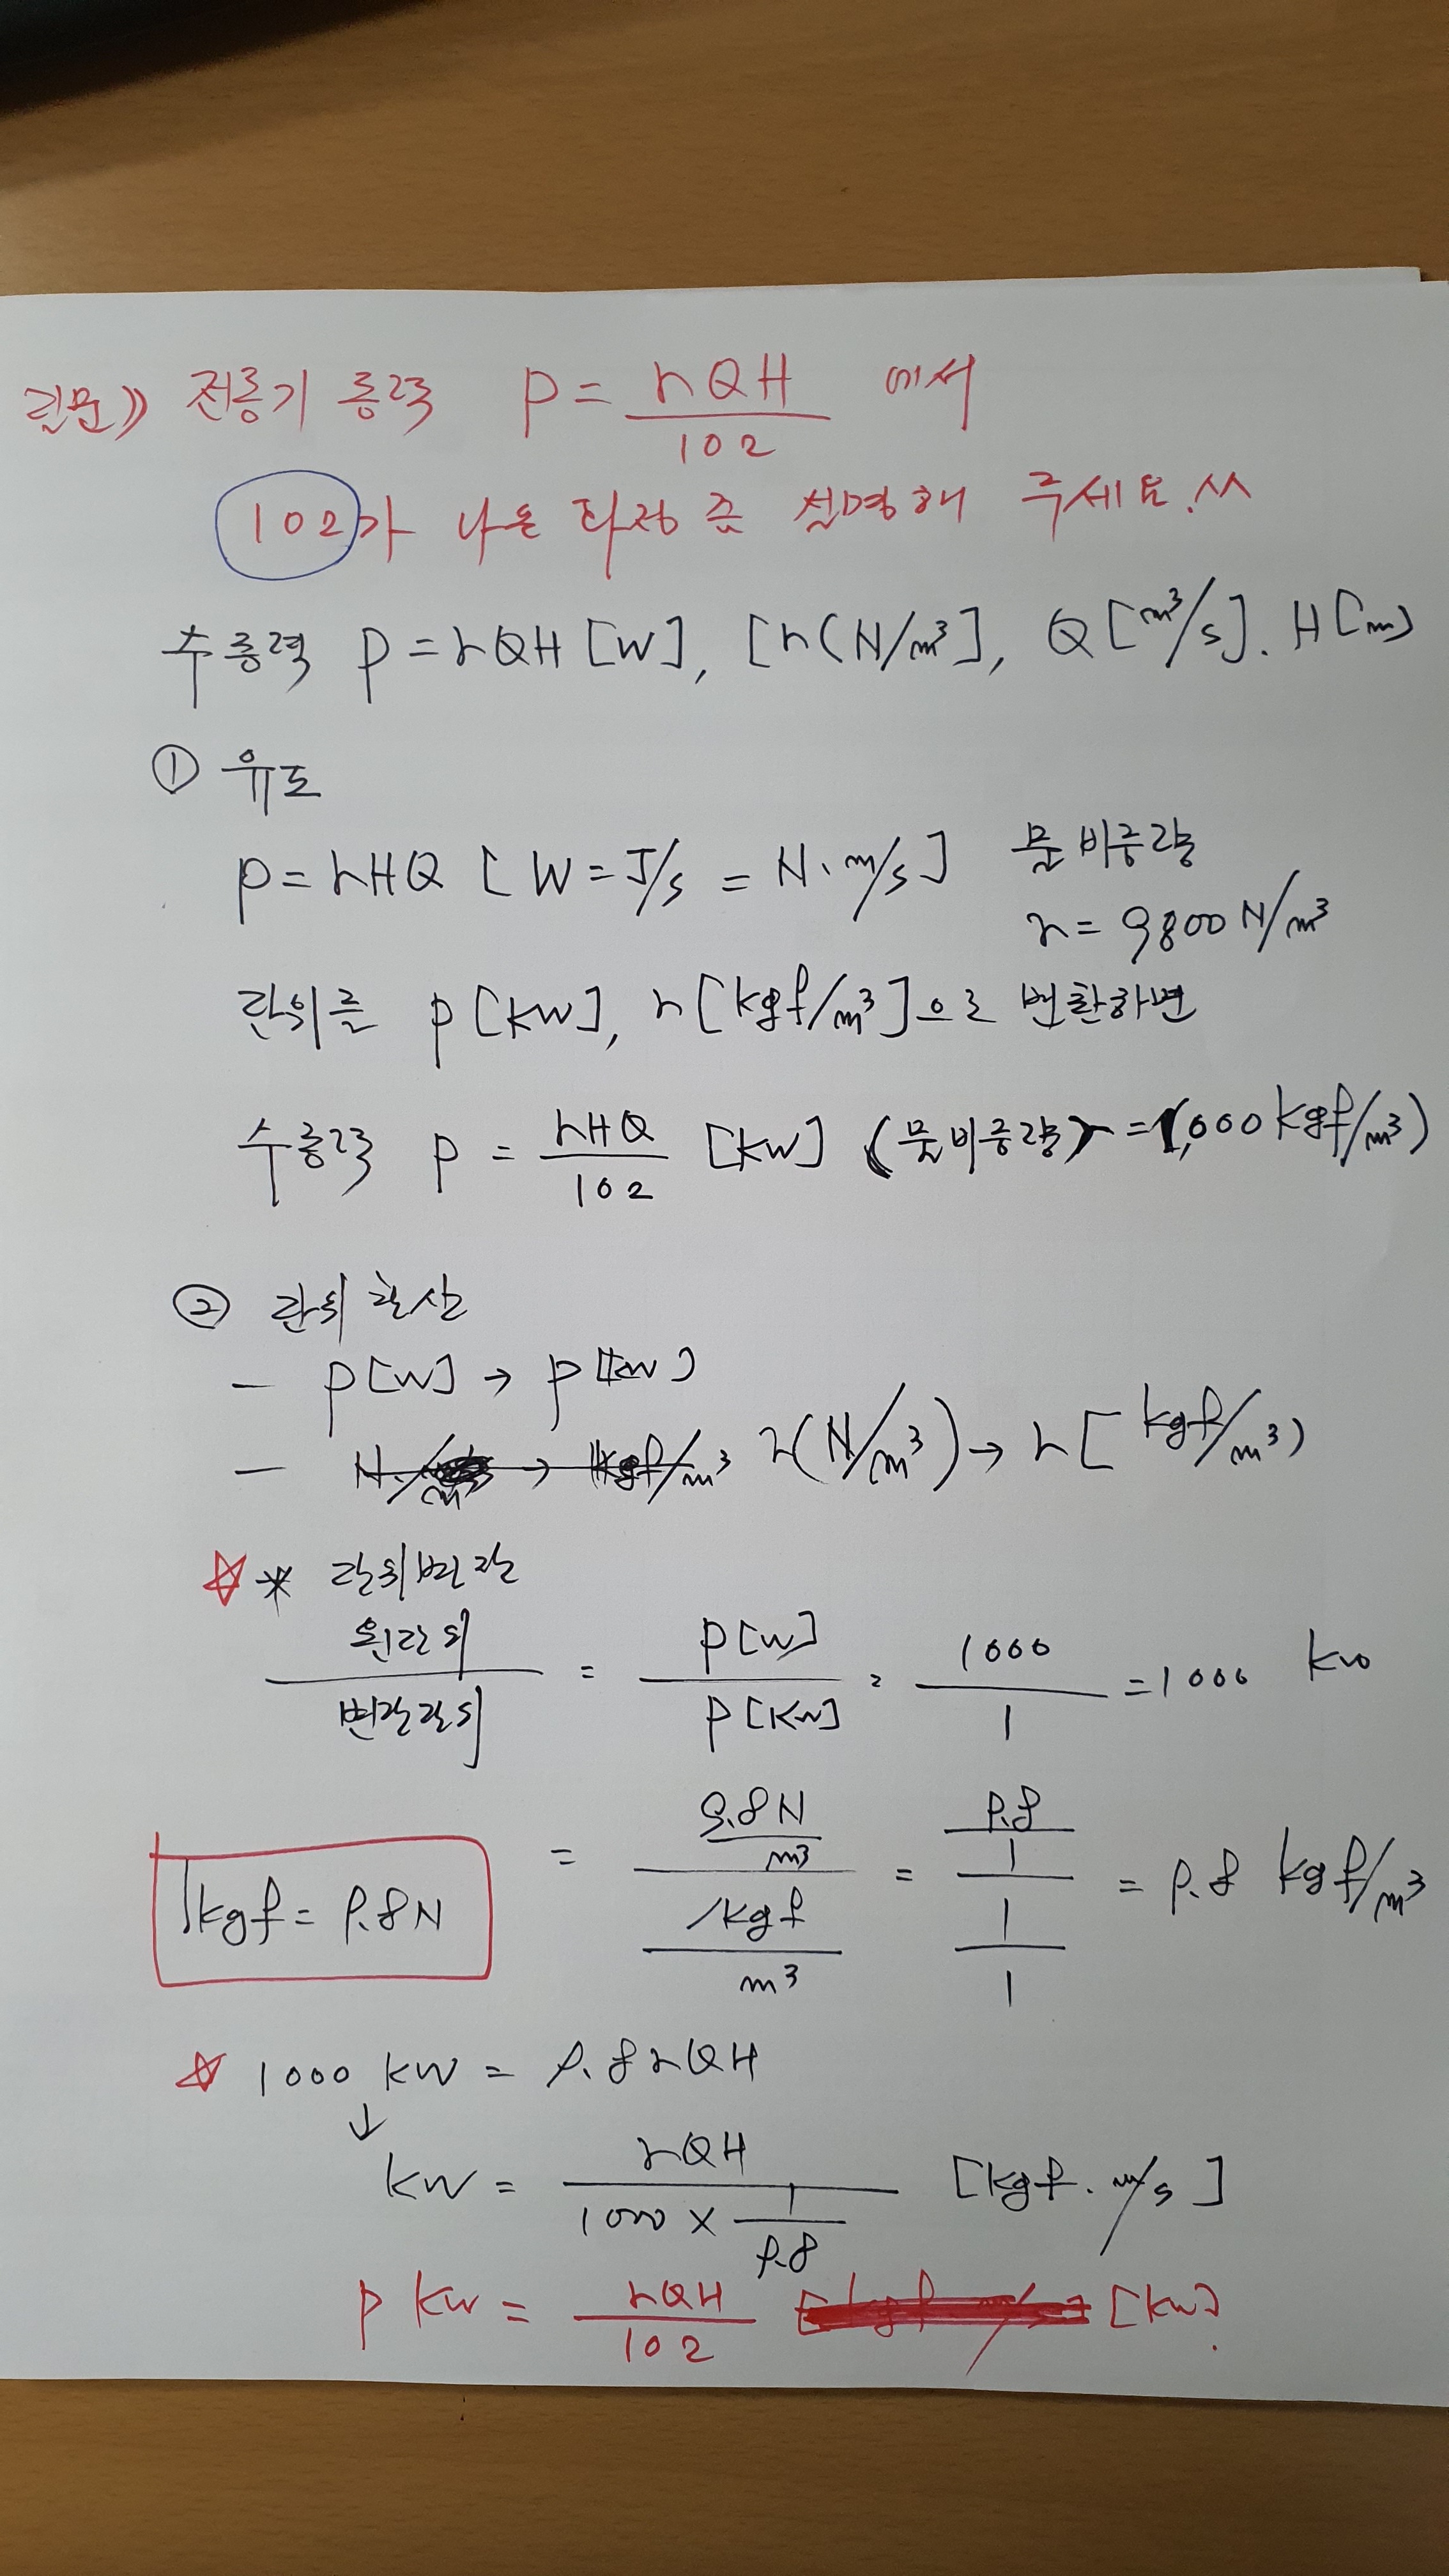 질문》 전동기 동력 P = rQH / 102 에서
102가 나온 과정 좀 설명해 주세요.^^
수동력 P = rQH [W], [r(N/m³], Q[m³/s]. H[m]
① 유도
P = rHQ [W = J/s = N·m/s] 물 비중량
r = 9800 N/m³
단위를 P[kW], r[kgf/m³]으로 변환하면
수동력 P = rHQ / 102 [kW] (물비중량 r = 1,000 kgf/m³)
② 단위 환산
- P[W] → P[kW]
- r(N/m³) → r[kgf/m³)
☆ * 단위변환
원단위 / 변환단위 = P[W] / P[KW] = 1000 / 1 = 1000 kw
1kgf = 9.8N
= 9.8N/m³ / 1kgf/m³ = 9.8/1 / 1/1 = 9.8 kgf/m³
☆ 1000 kW = 9.8rQH
↓
kW = rQH / 1000 × 1/9.8 [kgf·m/s]
P kW = rQH / 102 [kW].